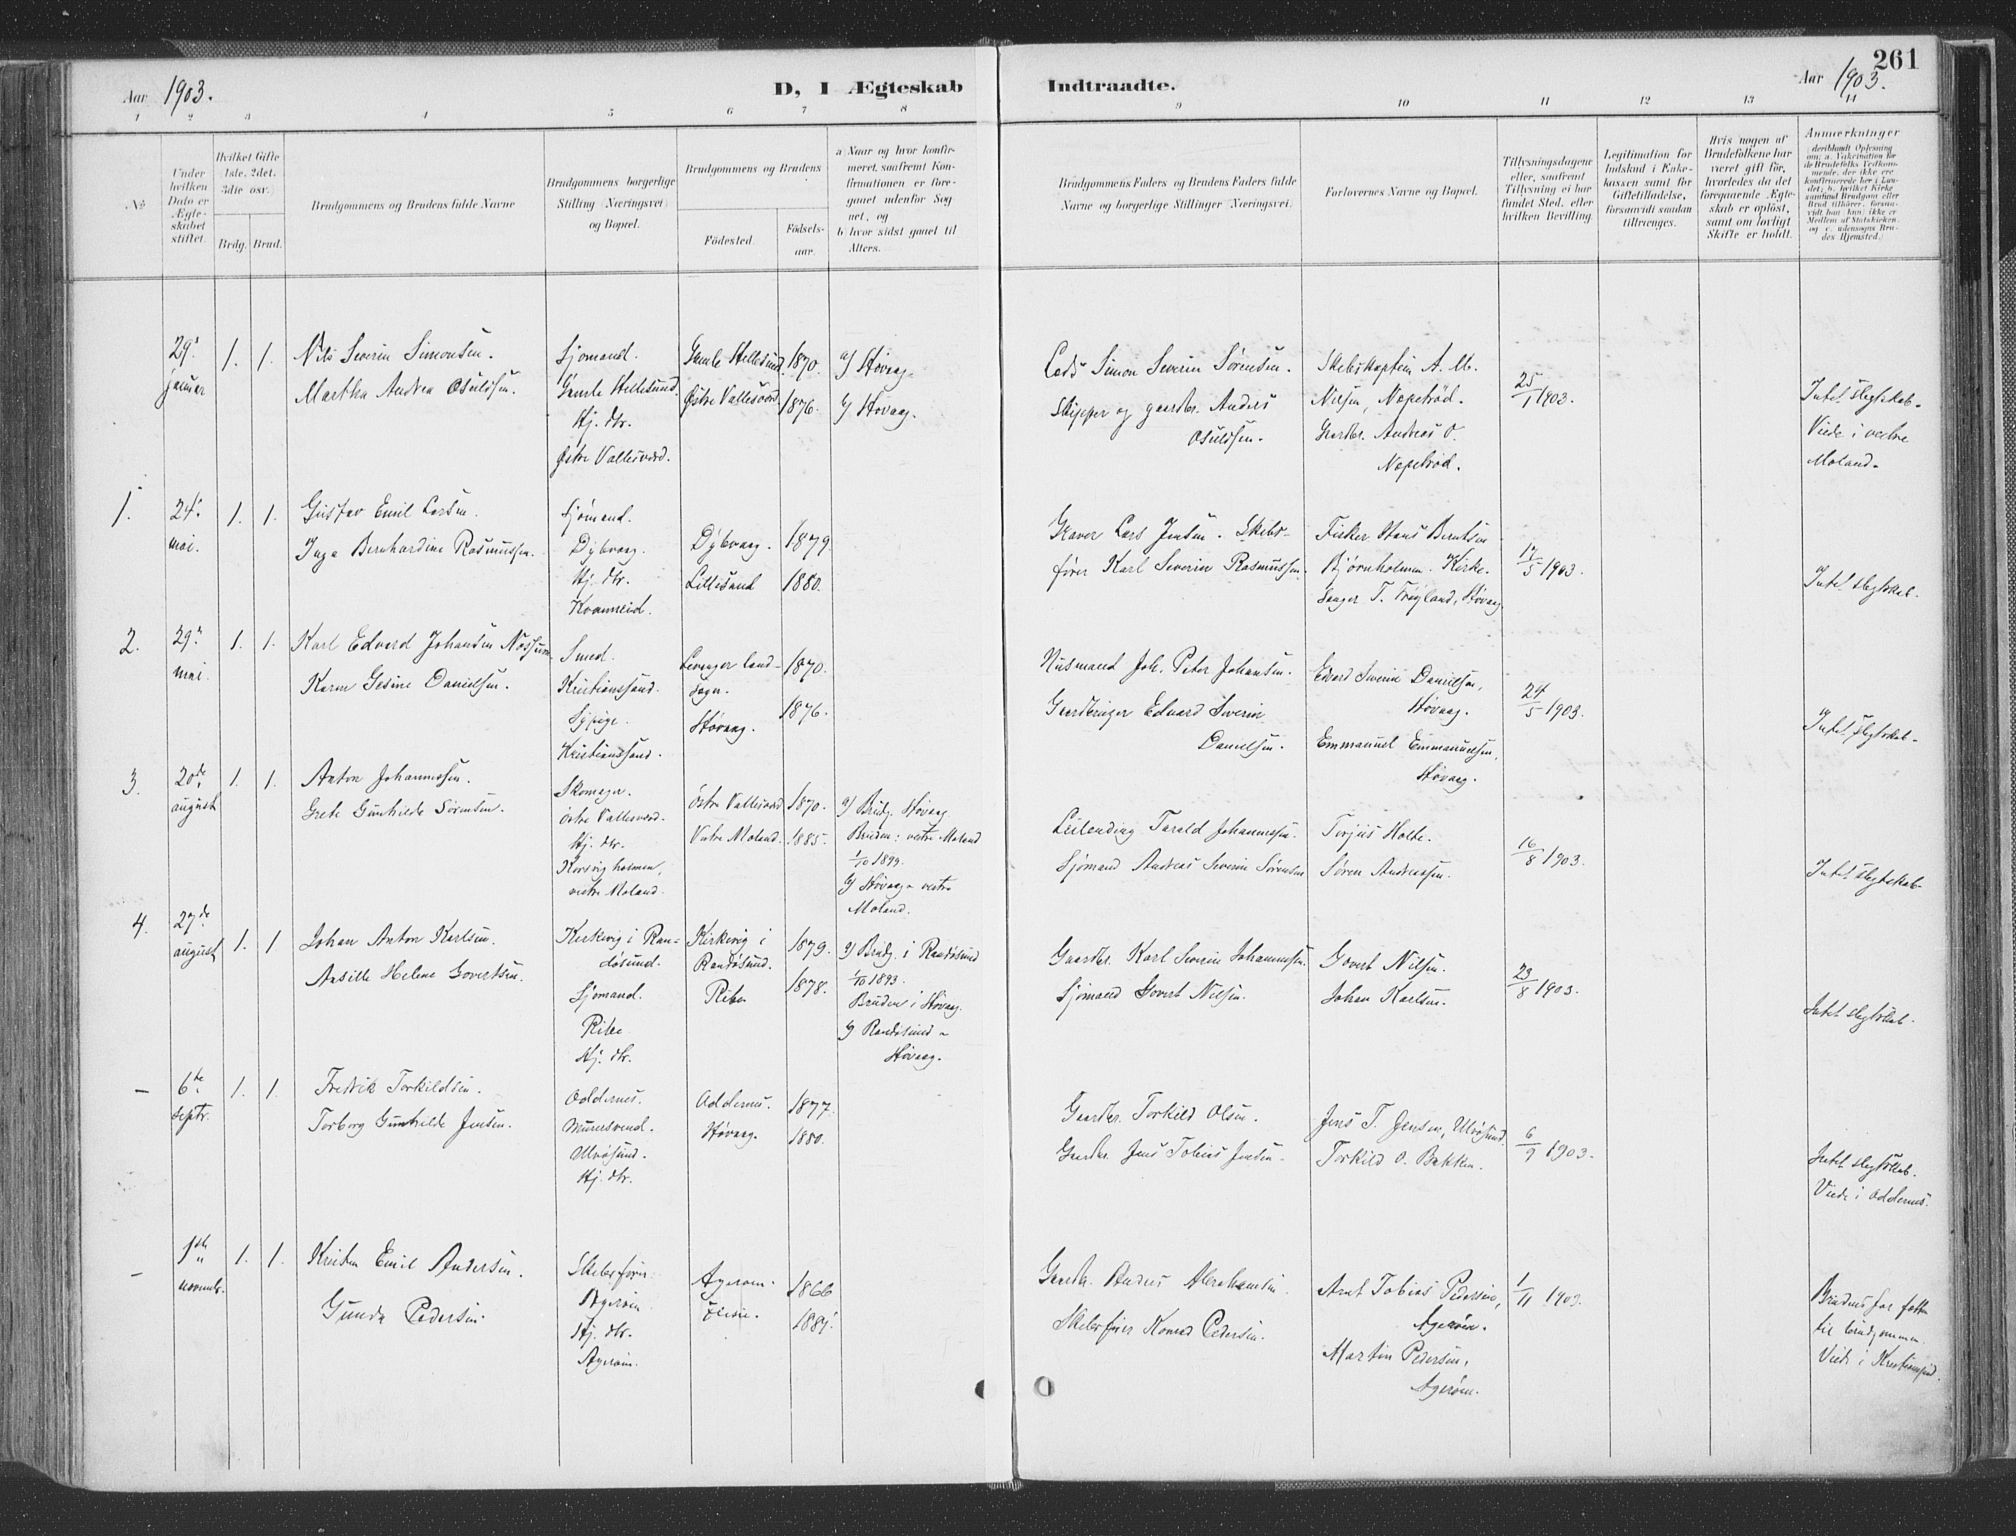 261
Aar 1903.
D, I Ægteskab Indtraadte.
Aar 1903.
1 2 3 4 5 6 7 8 9 10 11 12 13 14
No
Under hvilken Dato er Ægteskabet stiftet.
Hvilket Gifte 1ste, 2det, 3die osv.
Brdg. Brud.
Brudgommens og Brudens fulde Navne
Brudgommens borgerlige Stilling (Næringsvei) og Bopæl.
Brudgommens og Brudens
Fødested. Fødsels-aar.
a Naar og hvor konfirmeret, saafremt Konfirmationen er foregaaet udenfor Sognet, og
b hvor sidst gaaet til Alters.
Brudgommens Faders og Brudens Faders fulde Navne og borgerlige Stillinger (Næringsvei).
Forlovernes Navne og Bopæl.
Tillysningsdagene eller, saafremt Tillysning ei har fundet Sted, efter hvilken Bevilling.
Legitimation for Indskud i Enkekassen samt for Giftetilladelse, forsaavidt saadan tiltrænges.
Hvis nogen af Brudefolkene har været gift før, hvorledes da det foregaaende Ægteskab er opløst, samt om lovligt Skifte er holdt.
Anmerkninger
29' januar 1. 1. Nils Severin Simonsen.
Martha Andrea Osuldsen.
Sjømand. Gamle Hellesund.
Hj. dtr. Østre Vallesværd.
Gamle Hellesund. 1870.
Østre Vallesværd 1876.
a) Høvaag.
b) Høvaag.
Lods Simon Severin Sørensen.
Skipper og gaardbr. Anders Osuldsen.
Skibskaptein A. M. Nilsen, Næpetrød.
Gaardbr. Andreas O. Næpetrød.
25/1 1903.
Intet slegtskab.
Viede i vestre Moland.
1. 24' mai. 1. 1. Gustav Emil Larsen.
Inga Bernhardine Rasmussen.
Sjømand. Dybvaag.
Hj. dtr. Kvanneid.
Dybvaag. 1879.
Lillesand 1880.
Graver Lars Jensen. Skibsfører Karl Severin Rasmussen.
Fisker Hans Berntsen Bjørnholmen. Kirkesanger T. Frøyland, Høvaag.
17/5 1903.
Intet slegtskab.
2. 29' mai. 1. 1. Karl Edvard Johansen Nossum
Karen Gesine Danielsen.
Smed. Kristianssand.
Sypige. Kristianssand.
Levanger landsogn. 1870.
Høvaag. 1876.
Husmand Joh. Peter Johansen.
Gaardbruger Edvard Severin Danielsen.
Edvard Severin Danielsen, Høvaag.
Emmanuel Emmanuelsen, Høvaag.
24/5 1903.
Intet slegtskab.
3. 20de august 1. 1. Anton Johannessen.
Grete Gunhilde Sørensen.
Skomager. Østre Vallesværd.
Hj. dtr. Korsvig holmen, vestre Moland.
Østre Vallesværd 1870.
Vestre Moland. 1885.
a) Brudg. Høvaag Bruden: vestre Moland 1/10 1899.
b) Høvaag - vestre Moland.
Leilending Tarald Johannessen.
Sjømand Andreas Severin Sørensen
Terjus Holte.
Søren Andreassen.
16/8 1903.
Intet slegtskab.
4. 27de august 1. 1 Johan Anton Karlsen.
Ansille Helene Govertsen.
Kirkevig i Randøsund. Sjømand.
Ribe. Hj. dtr.
Kirkevig i Randøsund. 1879.
Ribe 1878.
a) Brudg. i Randøsund 1/10 1893.
Bruden i Høvaag.
b) Randøsund - Høvaag.
Gaardbr. Karl Severin Johannessen.
Sjømand Govert Nilsen.
Govert Nilsen.
Johan Karlsen.
23/8 1903.
Intet slegtskab.
- 6te septr. 1. 1. Fredrik Torkildsen.
Torborg Gunhilde Jensen.
Oddernes. Murersvend.
Ulvøsund. Hj. dtr.
Oddernes. 1877.
Høvaag. 1880.
Gaardbr. Torkild Olsen.
Gaardbr. Jens Tobias Jensen.
Jens T. Jensen, Ulvøsund
Torkild O. Bakken.
6/9 1903.
Intet slegtskab.
Viede i Oddernes.
- 1ste novemb. 1. 1. Kristen Emil Andersen.
Gunda Pedersen.
Skibsfører. Agerøen.
Hj. dtr. Agerøen.
Agerøen. 1866
1881
Gaardbr. Anders Abrahamsen.
Skibsfører Konrad Pedersen.
Arnt Tobias Pedersen, Agerøen.
Martin Pedersen, Agerøen.
1/11 1903.
til brudgommen.
Viede i Kristianssand.